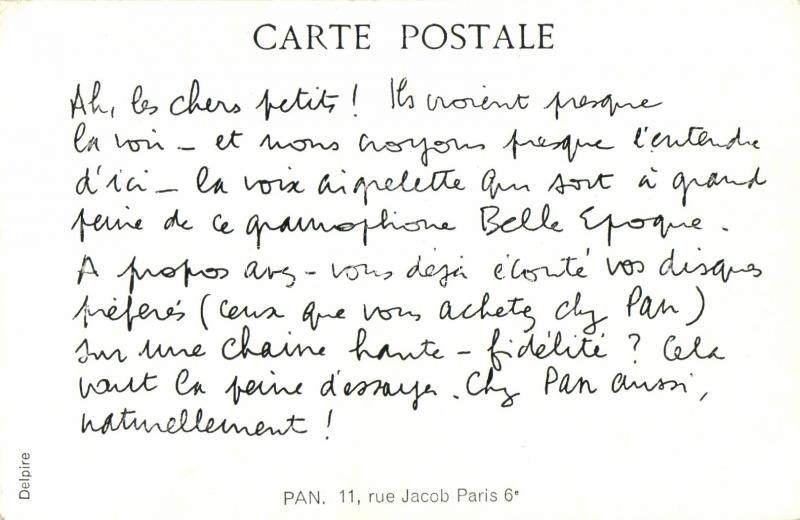 CARTE POSTALE
Ah, les chers petits ! Ils croient presque
la voir – et nous croyons presque l'entendre
d'ici – la voix aigrelette qui sort à grand
peine de ce gramophone Belle Epoque.
A propos avez-vous déjà écouté vos disques
préférés (ceux que vous achetez chez Pan)
sur une chaine haute-fidélité ? Cela
vaut la peine d'essayer. Chez Pan aussi,
naturellement !
Delpire
PAN. 11, rue Jacob Paris 6e